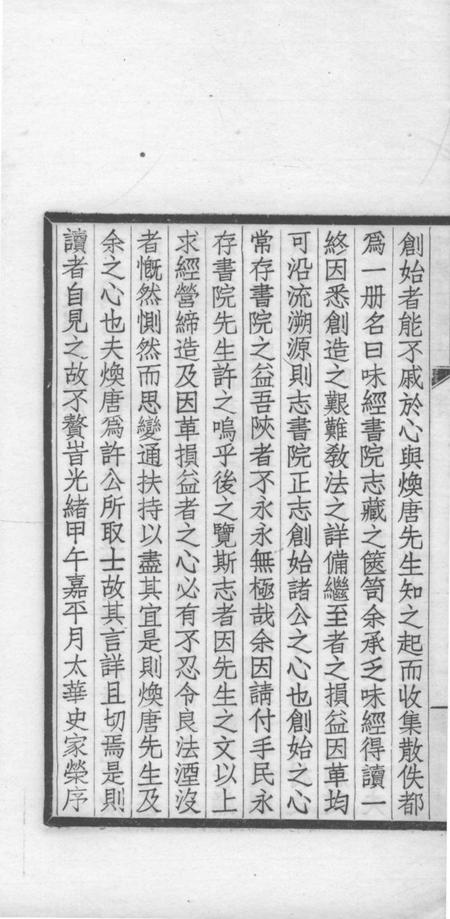 創始者能不戚於心與煥唐先生知之起而收集散佚都
爲一册名曰味經書院志藏之篋笥余承乏味經得讀一
終因悉創造之艱難教法之詳備繼至者之損益因革均
可沿流溯源則志書院正志創始諸公之心也創始之心
常存書院之益吾陝者不永永無極哉余因請付手民永
存書院先生許之嗚乎後之覽斯志者因先生之文以上
求經營締造及因革損益者之心必有不忍令良法湮沒
者慨然惻然而思變通扶持以盡其宜是則煥唐先生及
余之心也夫煥唐爲許公所取士故其言詳且切焉是則
讀者自見之故不贅旹光緒甲午嘉平月太華史家榮序